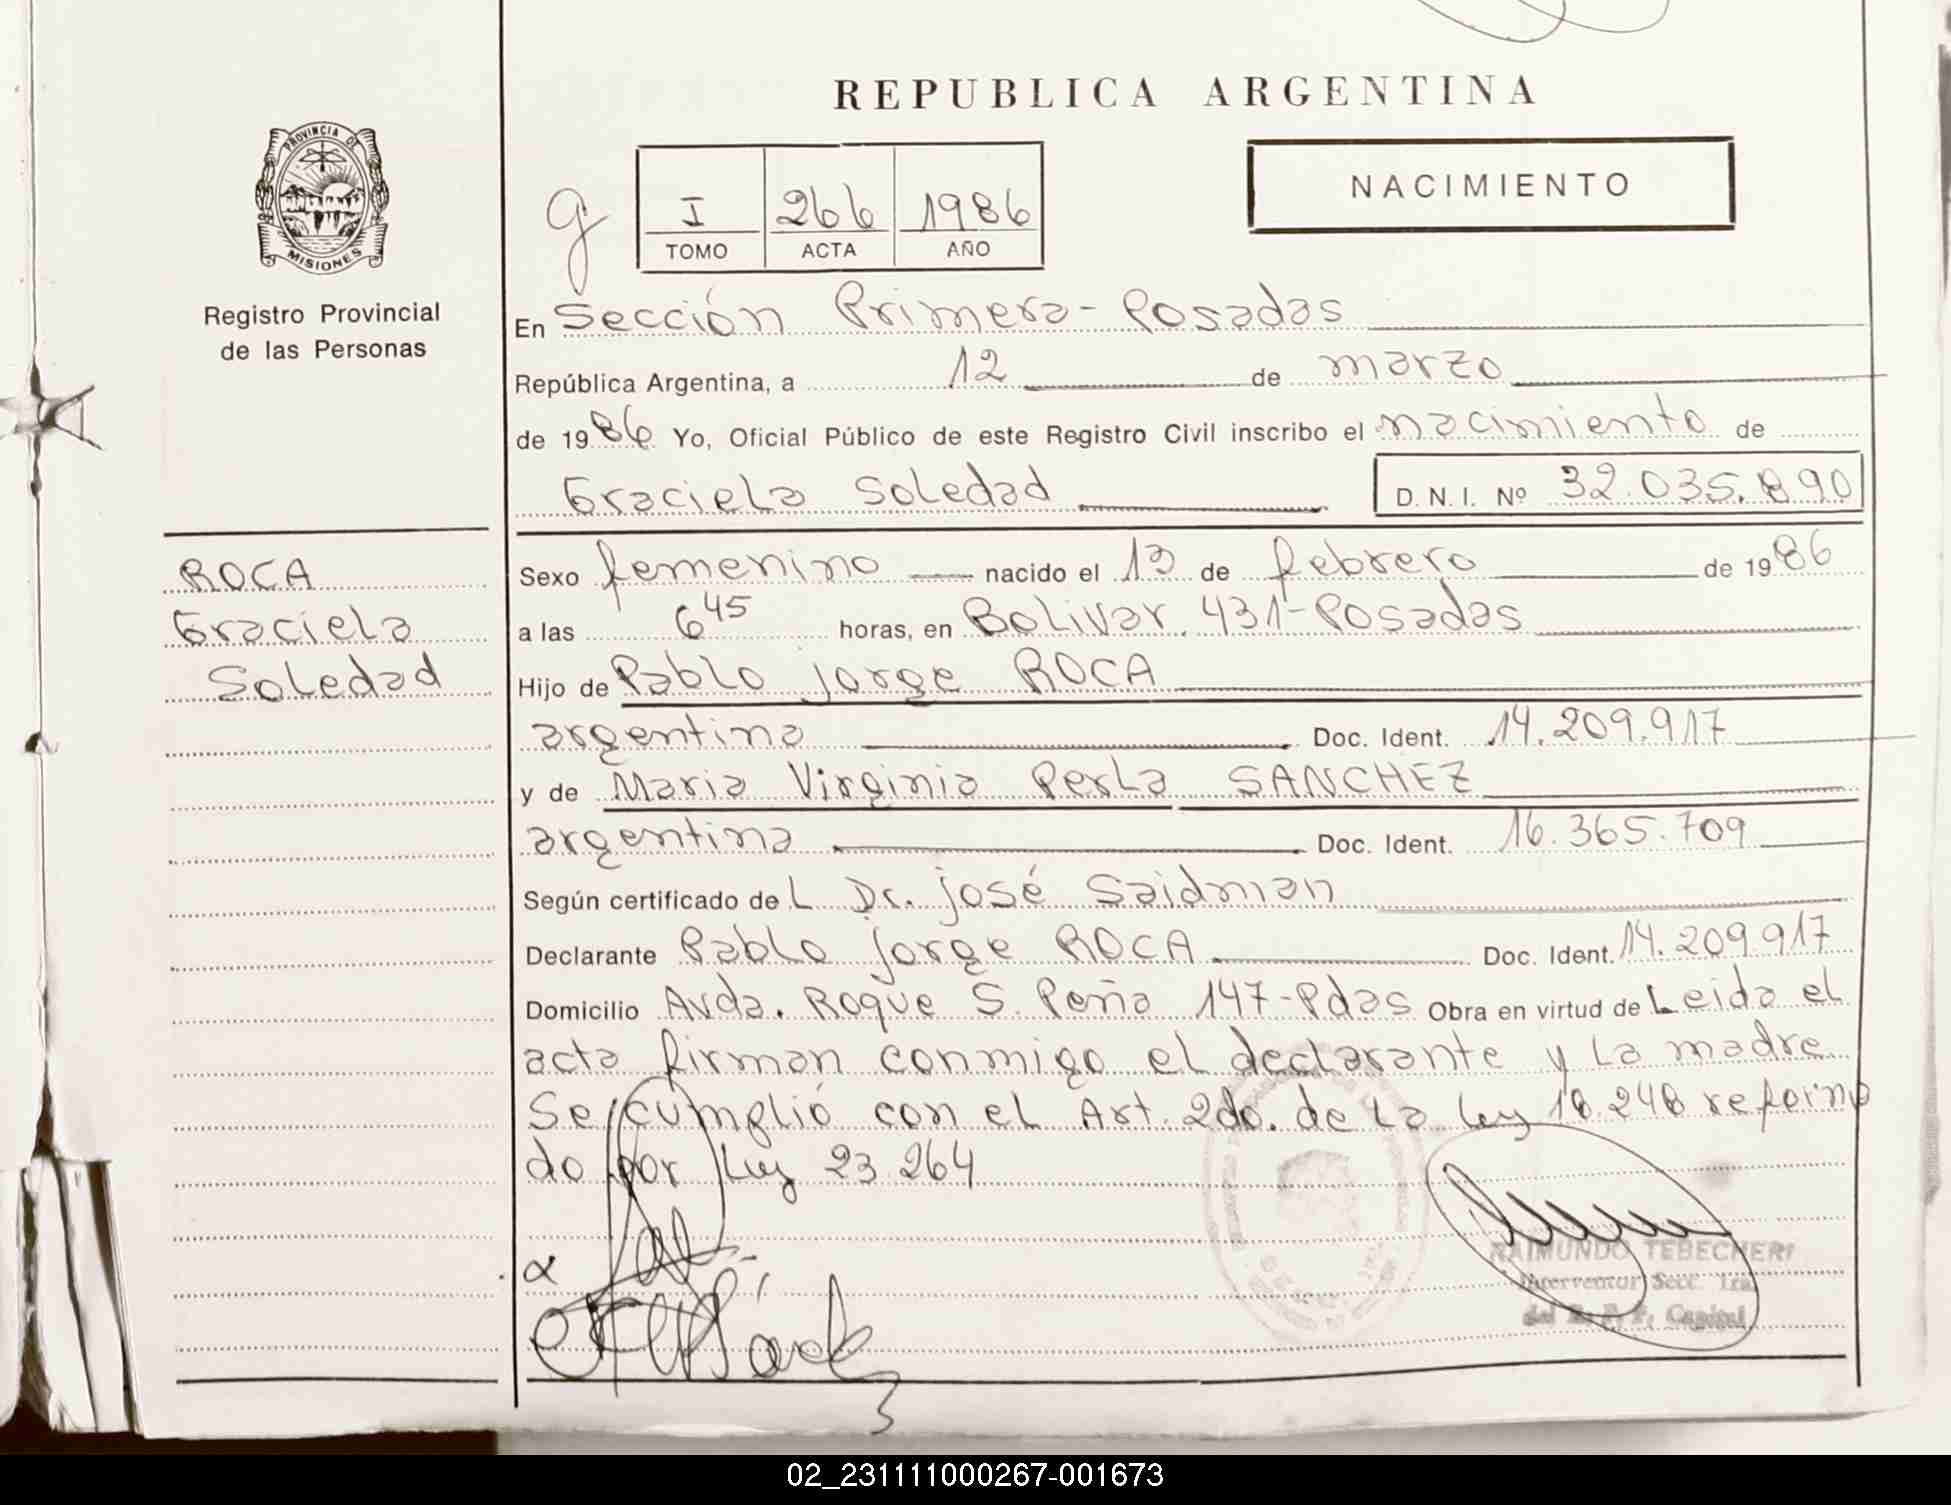 REPUBLICA ARGENTINA
PROVINCIA DE
MISIONES
Registro Provincial
de las Personas
g
I 266 1986
TOMO ACTA AÑO
NACIMIENTO
En Sección Primera- Posadas
República Argentina, a 12 de marzo
de 1986 Yo, Oficial Público de este Registro Civil inscribo el nacimiento de
Graciela Soledad D.N.I. Nº 32.035.890
ROCA
Graciela
Soledad
Sexo femenino nacido el 13 de febrero de 1986
a las 6 45 horas, en Bolivar 431-Posadas
Hijo de Pablo Jorge ROCA
argentino Doc. Ident. 14.209.917
y de Maria Virginia Perla SANCHEZ
argentina Doc. Ident. 16.365.709
Según certificado de L Dr. José Saidman
Declarante Pablo Jorge ROCA Doc. Ident. 14.209.917
Domicilio Avda. Roque S. Peña 147-Pdas Obra en virtud de Leida el
acta firman conmigo el declarante y la madre
Se cumplió con el Art. 2do. de la ley 18.248 reforma
do por Ley 23.264
RAIMUNDO TEBECHERI
Interventor Secc. 1ra
del R. P. P. Capital
02_231111000267-001673